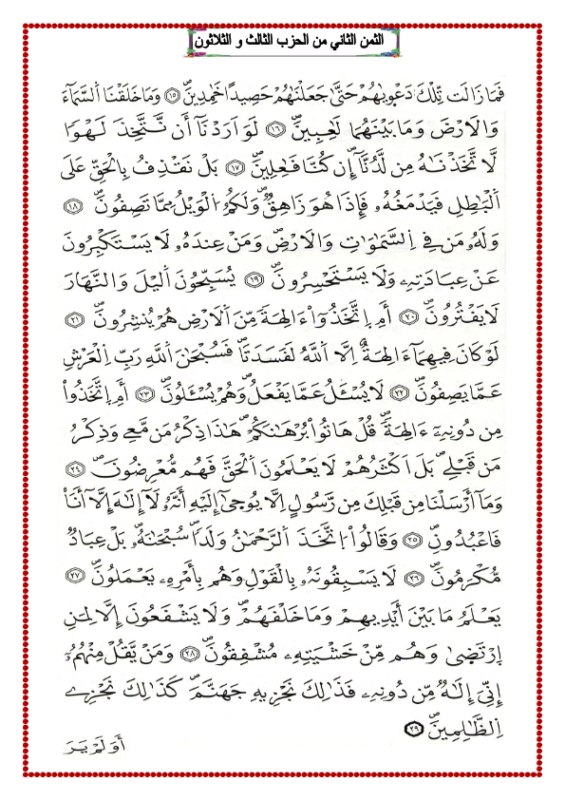 الثمن الثاني من الحزب الثالث و الثلاثون
فَمَا زَالَت تِّلْكَ دَعْوٰيهُمْ حَتَّىٰ جَعَلْنَٰهُمْ حَصِيداً خَٰمِدِينَۖ ١٥ وَمَا خَلَقْنَا اَ۬لسَّمَآءَ
وَالَارْضَ وَمَا بَيْنَهُمَا لَٰعِبِينَۖ ١٦ لَوَ اَرَدْنَآ أَن نَّتَّخِذَ لَهْواٗ
لَّاتَّخَذْنَٰهُ مِن لَّدُنَّآ إِن كُنَّا فَٰعِلِينَۖ ١٧ بَلْ نَقْذِفُ بِالْحَقِّ عَلَى
اَ۬لْبَٰطِلِ فَيَدْمَغُهُۥ فَإِذَا هُوَ زَاهِقٞۖ وَلَكُمُ اُ۬لْوَيْلُ مِمَّا تَصِفُونَۖ ١٨
وَلَهُۥ مَن فِے اِ۬لسَّمَٰوَٰتِ وَالَارْضِۖ وَمَنْ عِندَهُۥ لَا يَسْتَكْبِرُونَ
عَنْ عِبَادَتِهِۦ وَلَا يَسْتَحْسِرُونَۖ ١٩ يُسَبِّحُونَ اَ۬ليْلَ وَالنَّهَارَ
لَا يَفْتُرُونَۖ ٢٠ أَمِ اِ۪تَّخَذُوٓاْ ءَالِهَةٗ مِّنَ اَ۬لَارْضِ هُمْ يُنشِرُونَۖ ٢١
لَوْ كَانَ فِيهِمَآ ءَالِهَةٌ اِلَّا اَ۬للَّهُ لَفَسَدَتَاۖ فَسُبْحَٰنَ اَ۬للَّهِ رَبِّ اِ۬لْعَرْشِ
عَمَّا يَصِفُونَۖ ٢٢ لَا يُسْـَٔلُ عَمَّا يَفْعَلُ وَهُمْ يُسْـَٔلُونَۖ ٢٣ أَمِ اِ۪تَّخَذُواْ
مِن دُونِهِۦٓ ءَالِهَةٗۖ قُلْ هَاتُواْ بُرْهَٰنَكُمْۖ هَٰذَا ذِكْرُ مَن مَّعِے وَذِكْرُ
مَن قَبْلِےۖ بَلَ اَكْثَرُهُمْ لَا يَعْلَمُونَ اَ۬لْحَقَّ فَهُم مُّعْرِضُونَۖ ٢٤
وَمَآ أَرْسَلْنَا مِن قَبْلِكَ مِن رَّسُولٍ اِلَّا يُوحَىٰٓ إِلَيْهِ أَنَّهُۥ لَآ إِلَٰهَ إِلَّآ أَنَا
فَاعْبُدُونِۖ ٢٥ وَقَالُواْ اُ۪تَّخَذَ اَ۬لرَّحْمَٰنُ وَلَداٗۖ سُبْحَٰنَهُۥۖ بَلْ عِبَادٞ
مُّكْرَمُونَۖ ٢٦ لَا يَسْبِقُونَهُۥ بِالْقَوْلِ وَهُم بِأَمْرِهِۦ يَعْمَلُونَۖ ٢٧
يَعْلَمُ مَا بَيْنَ أَيْدِيهِمْ وَمَا خَلْفَهُمْۖ وَلَا يَشْفَعُونَ إِلَّا لِمَنِ
اِ۪رْتَضَىٰ وَهُم مِّنْ خَشْيَتِهِۦ مُشْفِقُونَۖ ٢٨ وَمَنْ يَّقُلْ مِنْهُمُۥٓ
إِنِّيَ إِلَٰهٞ مِّن دُونِهِۦ فَذَٰلِكَ نَجْزِيهِ جَهَنَّمَۖ كَذَٰلِكَ نَجْزِے
اِ۬لظَّٰلِمِينَۖ ٢٩
أَوَلَمْ يَرَ